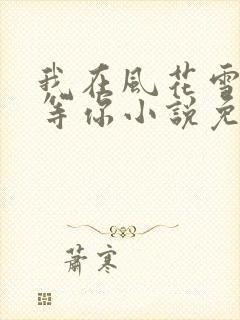 我在風花雪
等你小說免
蕭寒